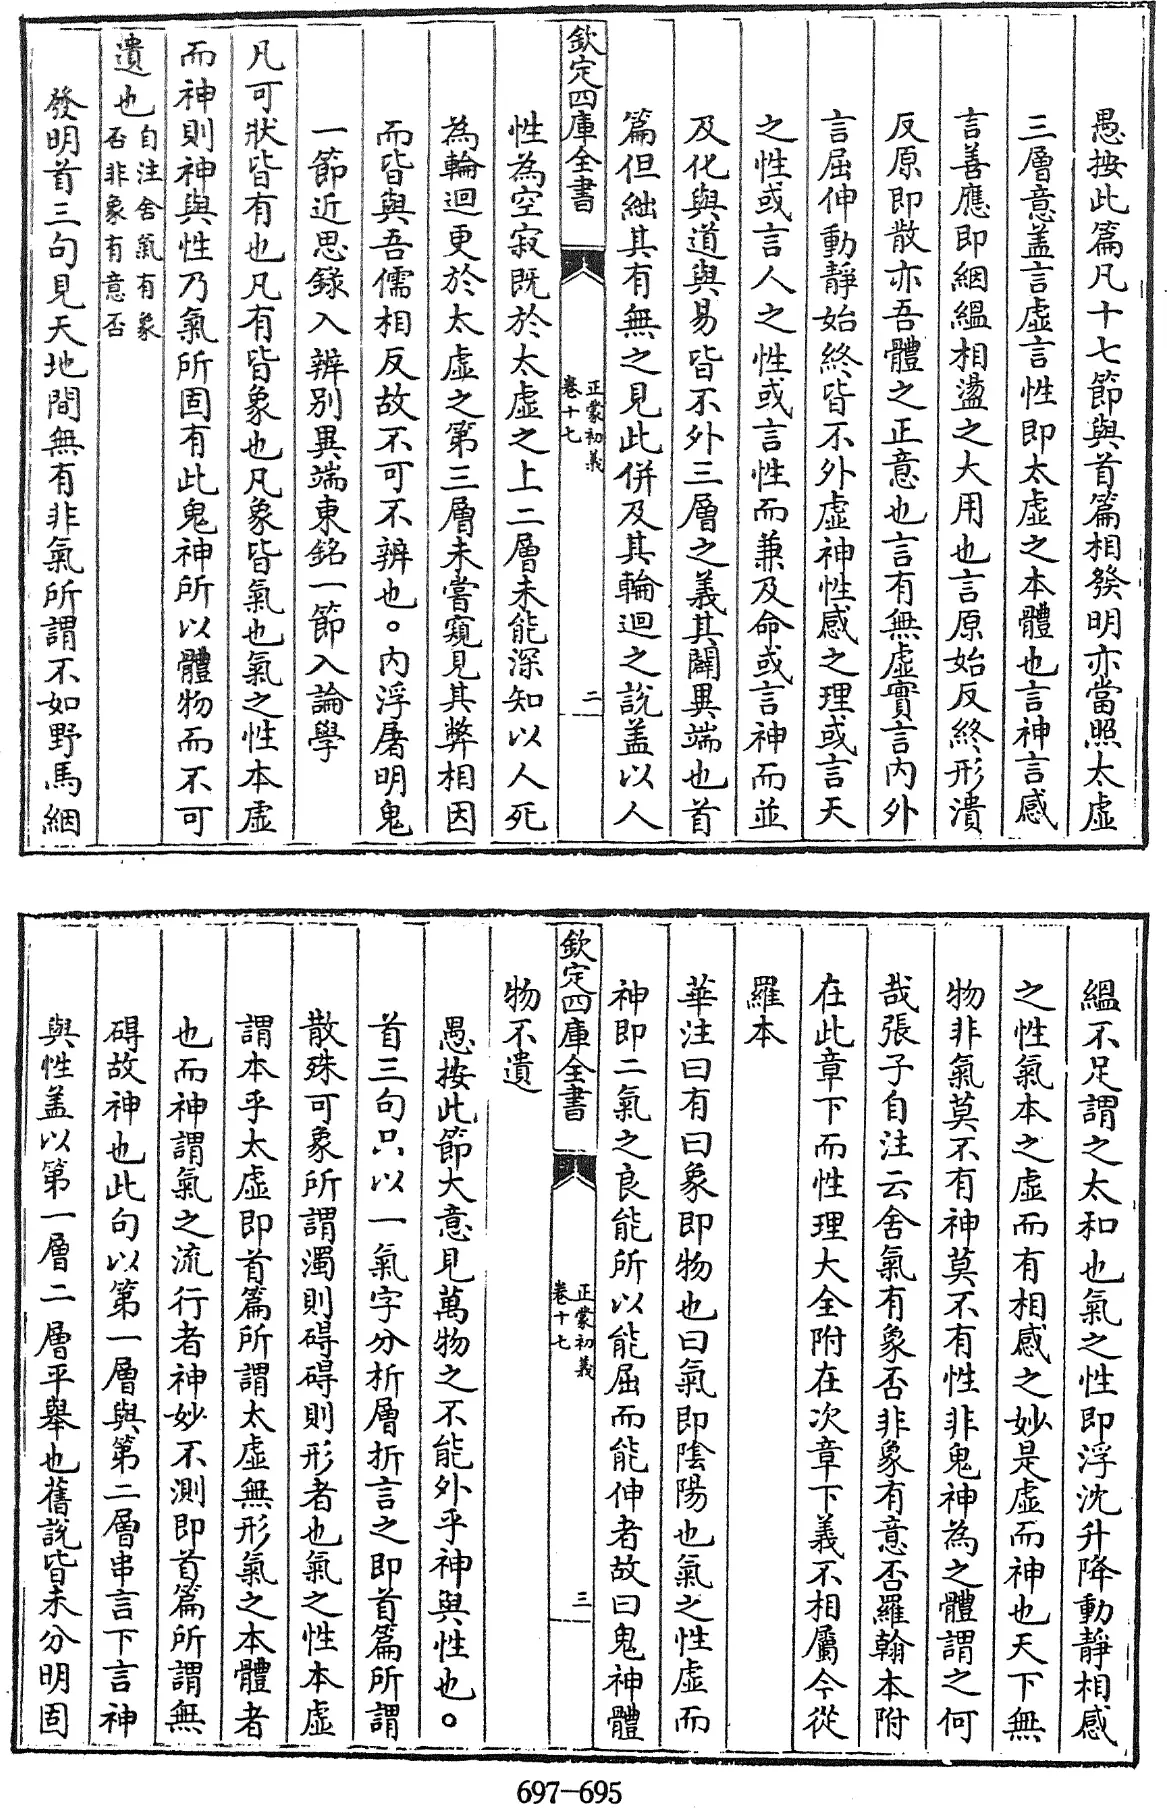 愚按此篇凡十七節與首篇相發明亦當照太虛
三層意蓋言虛言性即太虛之本體也言神言感
言善應即絪縕相盪之大用也言原始反終形潰
反原即散亦吾體之正意也言有無虛實言內外
言屈伸動靜始終皆不外虛神性感之理或言天
之性或言人之性或言性而兼及命或言神而並
及化與道與易皆不外三層之義其闢異端也首
篇但絀其有無之見此併及其輪迴之說蓋以人
欽定四庫全書
正蒙初義
卷十七
二
性為空寂既於太虛之上二層未能深知以人死
為輪迴更於太虛之第三層未嘗窺見其弊相因
而皆與吾儒相反故不可不辨也。內浮屠明鬼
一節近思錄入辨別異端東銘一節入論學
凡可狀皆有也凡有皆象也凡象皆氣也氣之性本虛
而神則神與性乃氣所固有此鬼神所以體物而不可
遺也自注舍氣有象
否非象有意否
發明首三句見天地間無有非氣所謂不如野馬絪
縕不足謂之太和也氣之性即浮沈升降動靜相感
之性氣本之虛而有相感之妙是虛而神也天下無
物非氣莫不有神莫不有性非鬼神為之體謂之何
哉張子自注云舍氣有象否非象有意否羅翰本附
在此章下而性理大全附在次章下義不相屬今從
羅本
華注曰有曰象即物也曰氣即陰陽也氣之性虛而
神即二氣之良能所以能屈而能伸者故曰鬼神體
欽定四庫全書
正蒙初義
卷十七
三
物不遺
愚按此節大意見萬物之不能外乎神與性也。
首三句只以一氣字分析層折言之即首篇所謂
散殊可象所謂濁則碍碍則形者也氣之性本虛
謂本乎太虛即首篇所謂太虛無形氣之本體者
也而神謂氣之流行者神妙不測即首篇所謂無
碍故神也此句以第一層與第二層串言下言神
與性蓋以第一層二層平舉也舊說皆未分明固
697-695